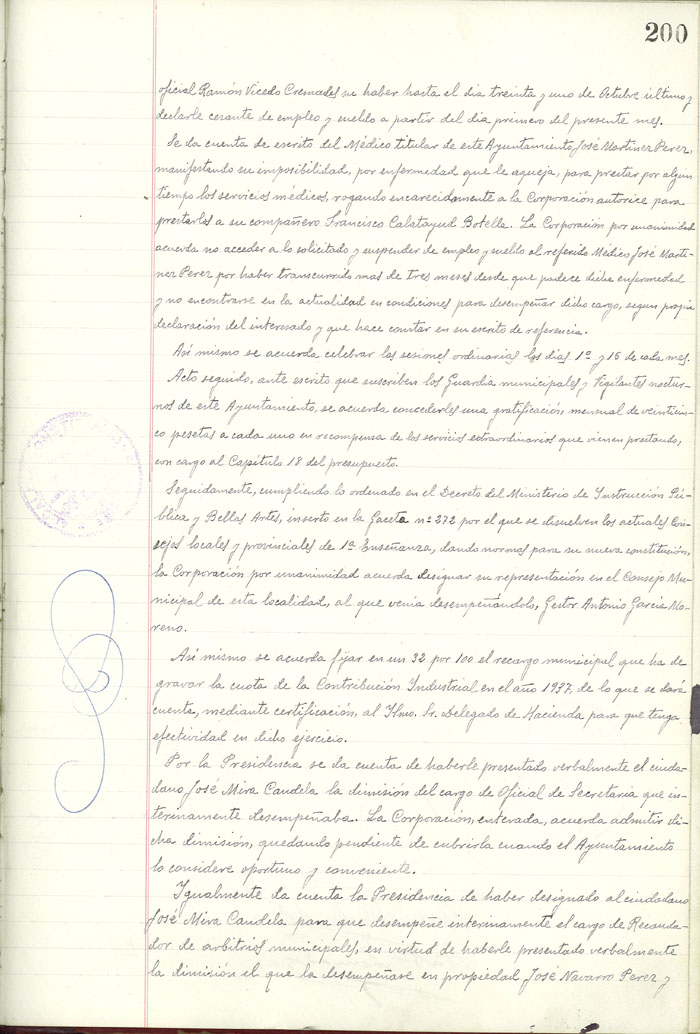 200
oficial Ramón Vicedo Cremades su haber hasta el dia treinta y uno de Octubre último y
declarle cesante de empleo y sueldo a partir del dia primero del presente mes.
Se da cuenta de escrito del Médico titular de este Ayuntamiento, José Martinez Perez,
manifestando su imposibilidad, por enfermedad que le aqueja, para prestar por algun
tiempo los servicios médicos, rogando encarecidamente a la Corporación autorice para
prestarlos a su compañero Francisco Calatayud Botella. La Corporación por unanimidad
acuerda no acceder a lo solicitado y suspender de empleo y sueldo al referido Médico José Marti-
nez Perez por haber transcurrido mas de tres meses desde que padece dicha enfermedad
y no encontrarse en la actualidad en condiciones para desempeñar dicho cargo, segun propia
declaración del interesado y que hace constar en su escrito de referencia.
Asi mismo se acuerda celebrar las sesiones ordinarias los dias 1º y 16 de cada mes.
Acto seguido, ante escrito que suscriben los Guardia municipales y Vigilantes noctur-
nos de este Ayuntamiento, se acuerda concederles una gratificación mensual de veinticin-
co pesetas a cada uno en recompensa de los servicios extraordinarios que vienen prestando,
con cargo al Capitulo 18 del presupuesto.
Seguidamente, cumpliendo lo ordenado en el Decreto del Ministerio de Instrucción Pú-
blica y Bellas Artes, inserto en la Gaceta nº 272 por el que se disuelven los actuales Con-
sejos locales y provinciales de 1ª Enseñanza, dando normas para su nueva constitución,
la Corporación por unanimidad acuerda designar su representación en el Consejo Mu-
nicipal de esta localidad, al que venia desempeñandolo, Gestor Antonio Garcia Mo-
reno.
Asi mismo se acuerda fijar en un 32 por 100 el recargo municipal que ha de
gravar la cuota de la Contribución Industrial en el año 1937, de lo que se dará
cuenta, mediante certificación, al Ilmo. Sr. Delegado de Hacienda para que tenga
efectividad en dicho ejercicio.
Por la Presidencia se da cuenta de haberle presentado verbalmente el ciuda-
dano José Mira Candela la dimisión del cargo de Oficial de Secretaria que in-
terinamente desempeñaba. La Corporación, enterada, acuerda admitir di-
cha dimisión, quedando pendiente de cubrirla cuando el Ayuntamiento
lo considere oportuno y conveniente.
Igualmente da cuenta la Presidencia de haber designado al ciudadano
José Mira Candela para que desempeñe interinamente el cargo de Recauda-
dor de arbitrios municipales, en virtud de haberle presentado verbalmente
la dimisión el que la desempeñase en propiedad, José Navarro Perez y